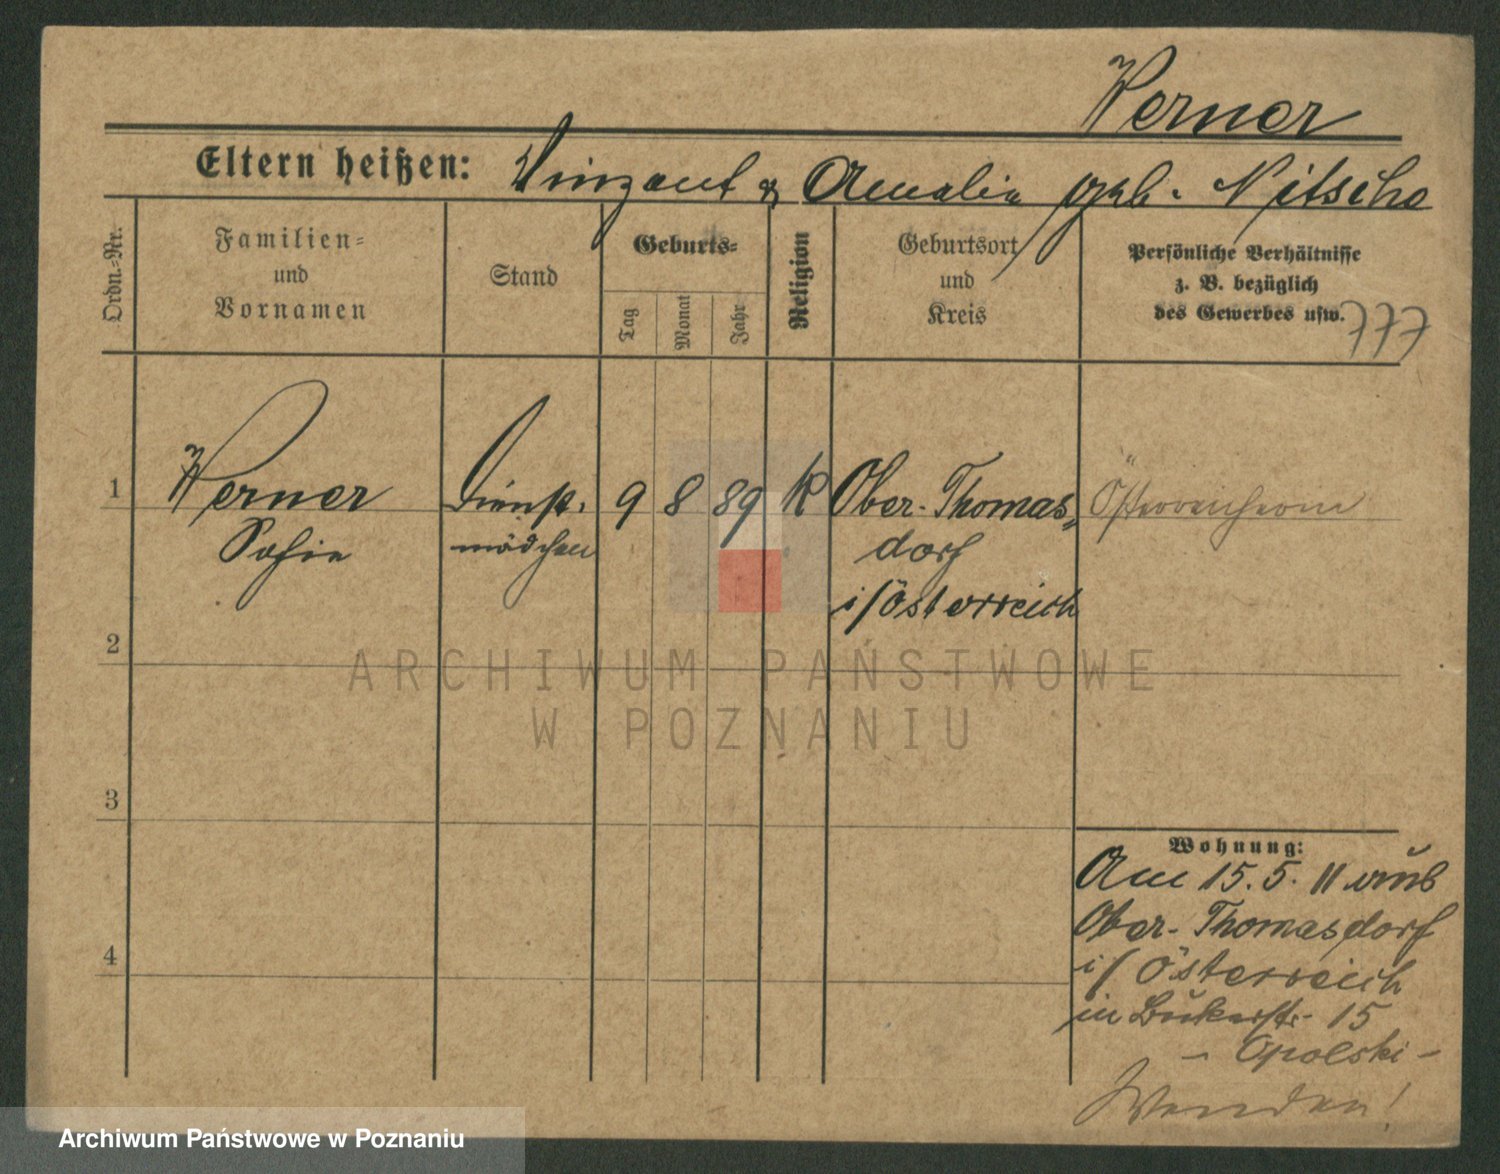 Werner
Eltern heißen: Vinzent & Amalie geb. Nitsche
Ordn.-Nr.
Familien-
und
Vornamen
Stand
Geburts-
Tag
Monat
Jahr
Religion
Geburtsort
und
Kreis
Persönliche Verhältnisse
z. B. bezüglich
des Gewerbes usw.
777
1
Werner
Sofie
Dienst-
mädchen
9
8
89
K
Ober-Thomas-
dorf
i/Österreich
Österreicherin
2
3
4
Wohnung:
Am 15.5.11 aus
Ober-Thomasdorf
i/Österreich
in Bukerstr. 15
- Opolski -
Wenden!
ARCHIWUM PAŃSTWOWE
W POZNANIU
Archiwum Państwowe w Poznaniu